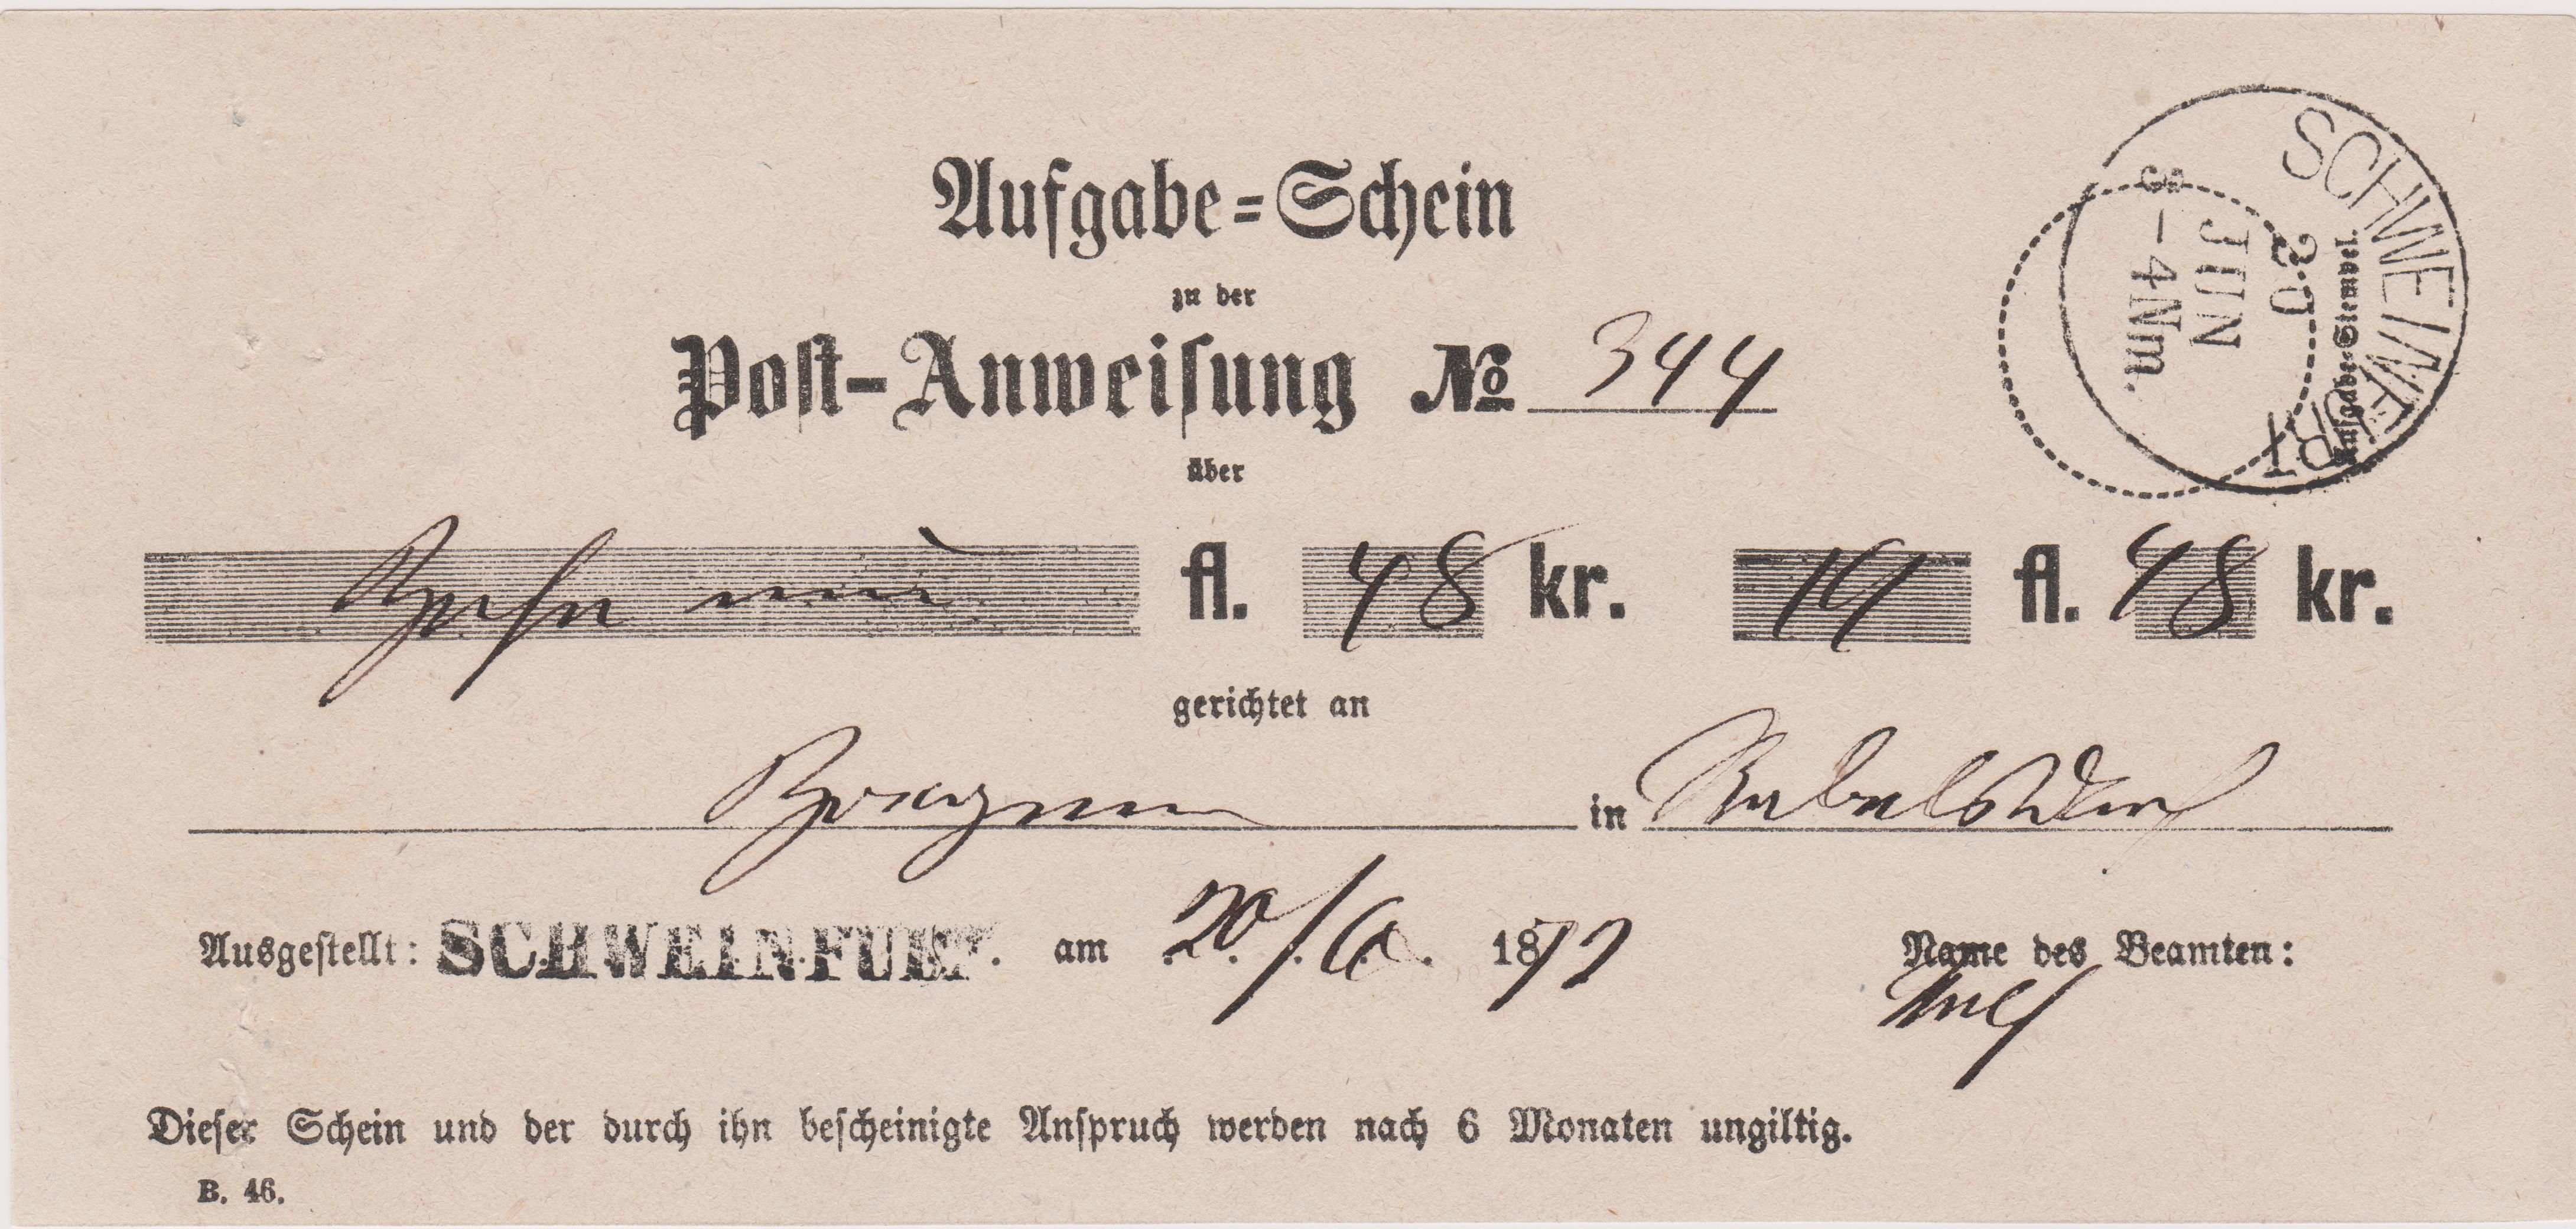 Aufgabe=Schein
zu der
Post-Anweisung No 344
über
fl. 48 kr. 14 fl. 48 kr.
gerichtet an
in Rabelsdorf
Ausgestellt: SCHWEINFURT. am 20/6. 1872
Name des Beamten:
Dieser Schein und der durch ihn bescheinigte Anspruch werden nach 6 Monaten ungiltig.
B. 46.
SCHWEINFURT
20
JUN
3-4Nm.
Aufgabe-Stempel.